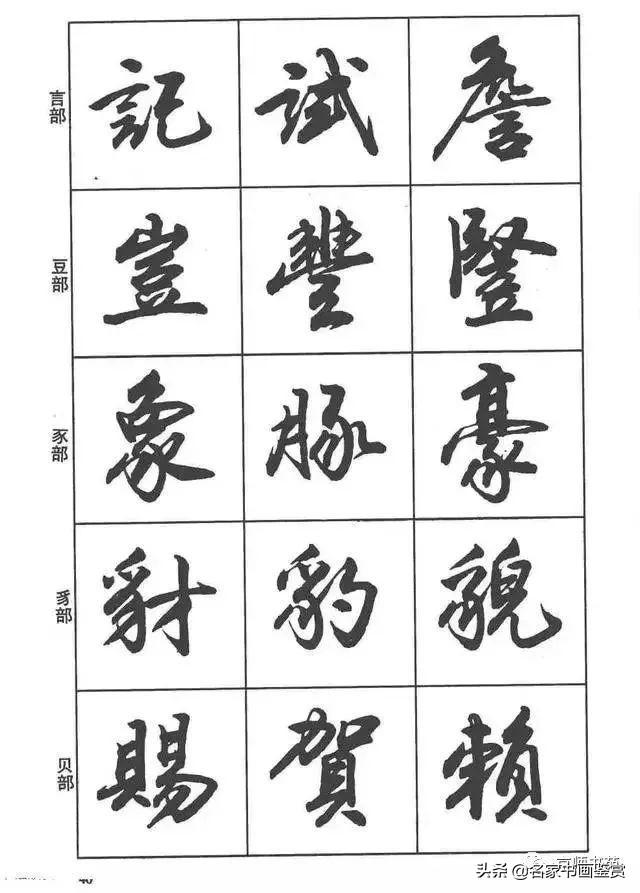 言部 記 試 詹
豆部 豈 豐 豎
豕部 象 豚 豪
豸部 豺 豹 貌
贝部 賜 賀 賴
40
头条 @名家书画鉴赏